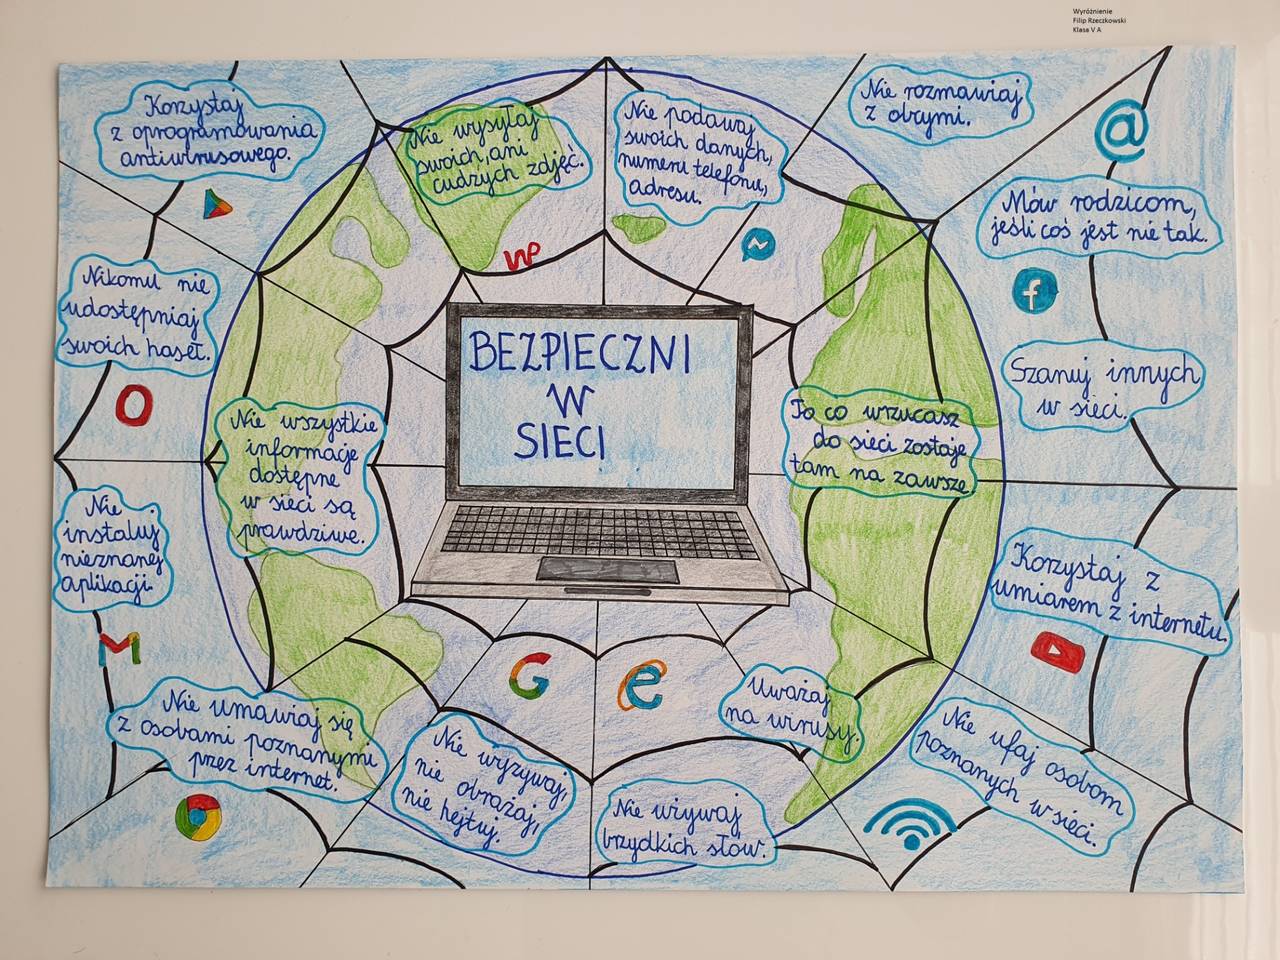 Wyróżnienie
Filip Rzeczkowski
Klasa V A
Korzystaj
z oprogramowania
antiwirusowego.
Nie wysyłaj
swoich, ani
cudzych zdjęć.
Nie podawaj
swoich danych,
numeru telefonu,
adresu.
Nie rozmawiaj
z obcymi.
@
Mów rodzicom,
jeśli coś jest nie tak.
Nikomu nie
udostępniaj
swoich haseł.
WP
f
BEZPIECZNI
W
SIECI
Szanuj innych
w sieci.
O
Nie wszystkie
informacje
dostępne
w sieci są
prawdziwe.
To co wrzucasz
do sieci zostaje
tam na zawsze.
Nie
instaluj
nieznanej
aplikacji.
Korzystaj z
umiarem z internetu.
M
G
e
Nie umawiaj się
z osobami poznanymi
przez internet.
Nie wyzywaj,
nie obrażaj,
nie hejtuj.
Uważaj
na wirusy.
Nie używaj
brzydkich słów.
Nie ufaj osobom
poznanych w sieci.